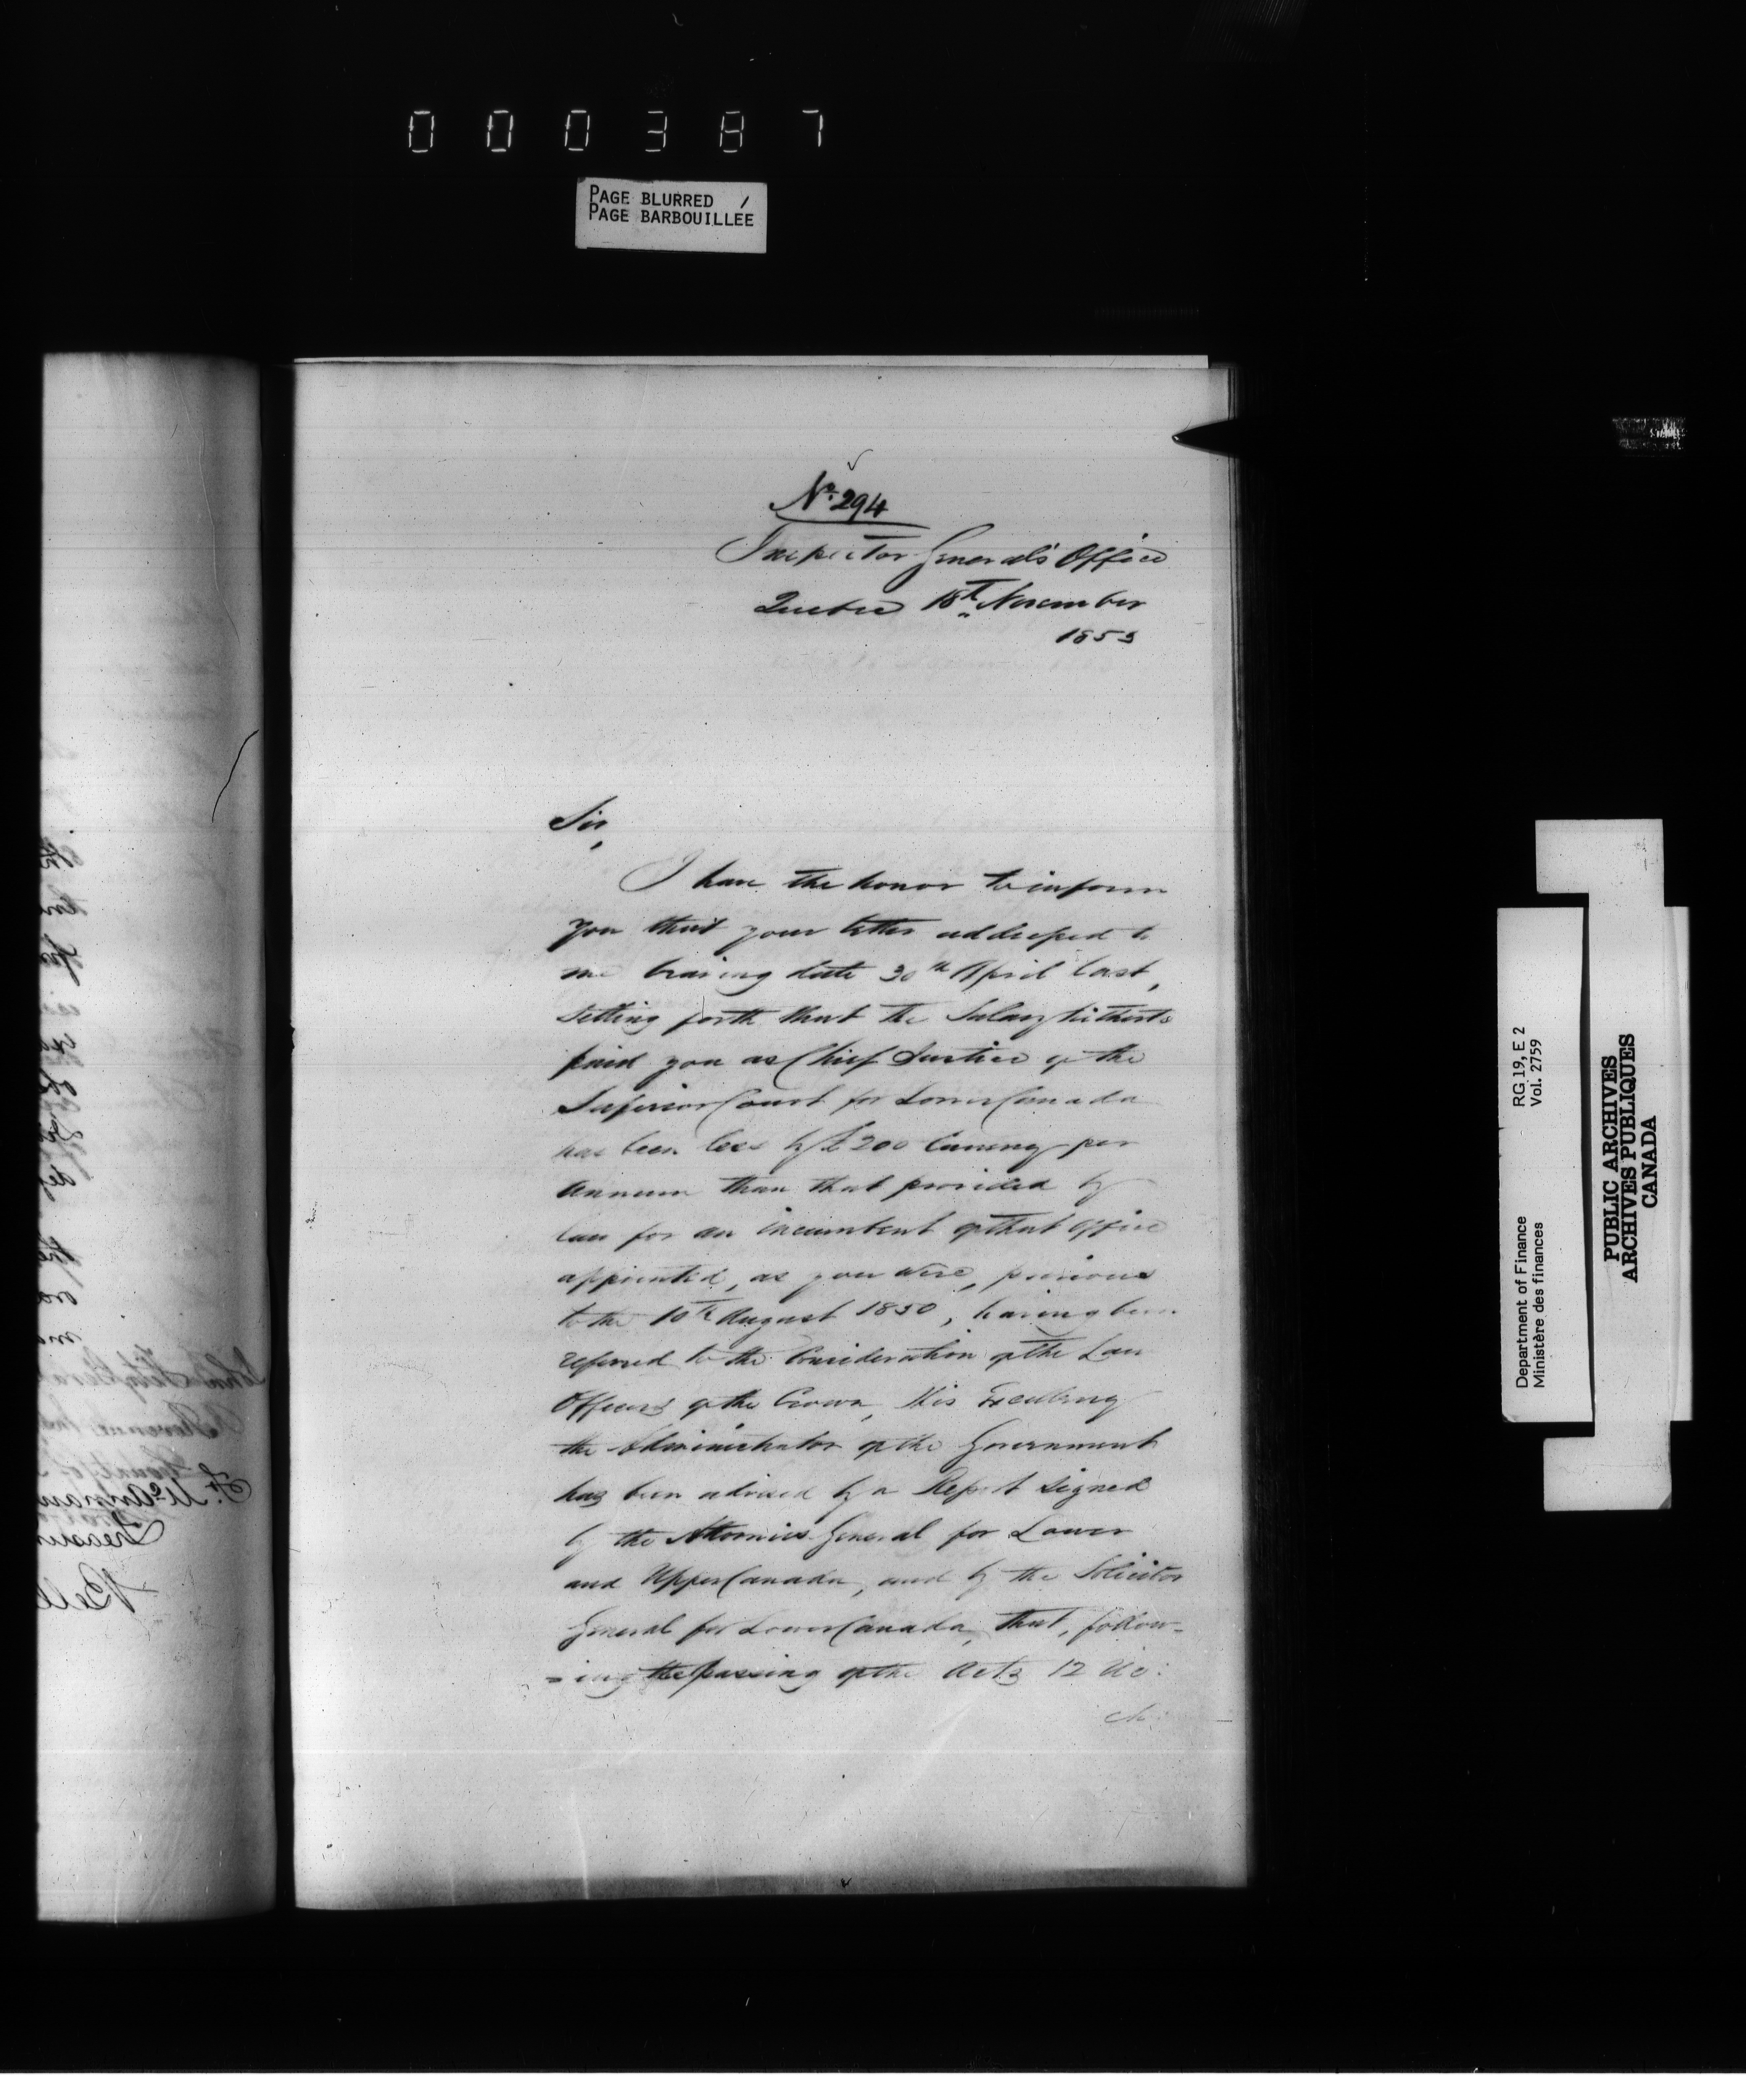 000387
PAGE BLURRED /
PAGE BARBOUILLEE
No. 294
Inspector General's Office
Quebec 18th November
1853
Sir,
I have the honor to inform
you that your letter addressed to
me bearing date 30th April last,
setting forth that the Salary hitherto
paid you as Chief Justice of the
Superior Court for Lower Canada
has been less by £200 Currency per
Annum than that provided by
law for an incumbent of that Office
appointed, as you were, previous
to the 10th August 1850, having been
referred to the Consideration of the Law
Officers of the Crown, His Excellency
the Administrator of the Government
has been advised by a Report signed
by the Attornies General for Lower
and Upper Canada, and by the Solicitor
General for Lower Canada, that, follow-
-ing the passing of the Acts 12 Vic:
ch:
RG 19, E 2
Vol. 2759
Department of Finance
Ministère des finances
PUBLIC ARCHIVES
ARCHIVES PUBLIQUES
CANADA